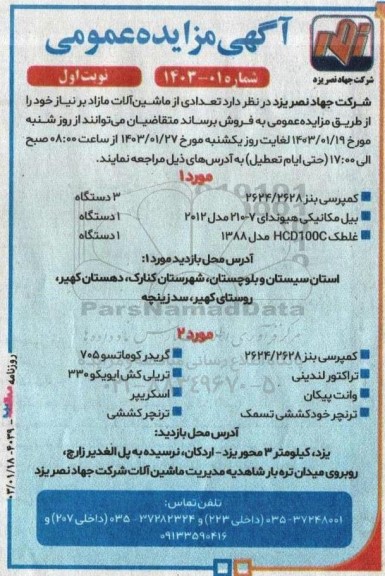 آگهی مزایده عمومی
شرکت جهاد نصر یزد
شماره ۰۱-۱۴۰۳
نوبت اول
شرکت جهاد نصر یزد در نظر دارد تعدادی از ماشین‌آلات مازاد بر نیاز خود را
از طریق مزایده عمومی به فروش برساند متقاضیان می‌توانند از روز شنبه
مورخ ۱۴۰۳/۰۱/۱۹ لغایت روز یکشنبه مورخ ۱۴۰۳/۰۱/۲۷ از ساعت ۰۸:۰۰ صبح
الی ۱۷:۰۰ (حتی ایام تعطیل) به آدرس‌های ذیل مراجعه نمایند.
مورد۱
کمپرسی بنز ۲۶۲۴/۲۶۲۸ ۳ دستگاه
بیل مکانیکی هیوندای ۷-۲۱۰ مدل ۲۰۱۲ ۱ دستگاه
غلطک HCD100C مدل ۱۳۸۸ ۱ دستگاه
آدرس محل بازدید مورد ۱:
استان سیستان و بلوچستان، شهرستان کنارک، دهستان کهیر،
روستای کهیر، سد زینچه
ParsNamadData
مورد۲
کمپرسی بنز ۲۶۲۴/۲۶۲۸ گریدر کوماتسو ۷۰۵
تراکتور لندینی تریلی کش ایویکو ۳۳۰
وانت پیکان اسکریپر
ترنچر خودکششی تسمک ترنچر کششی
آدرس محل بازدید:
یزد، کیلومتر ۳ محور یزد - اردکان، نرسیده به پل الغدیر زارچ،
روبروی میدان تره بار شاهدیه مدیریت ماشین آلات شرکت جهاد نصر یزد
تلفن تماس:
۰۳۵-۳۷۲۴۸۰۰۱ (داخلی ۲۲۳) و ۰۳۵-۳۷۲۸۲۳۲۴ (داخلی ۲۰۷) و
۰۹۱۳۳۵۹۰۴۱۶
روزنامه ۴۰۲۹-۰۳/۰۱/۱۸